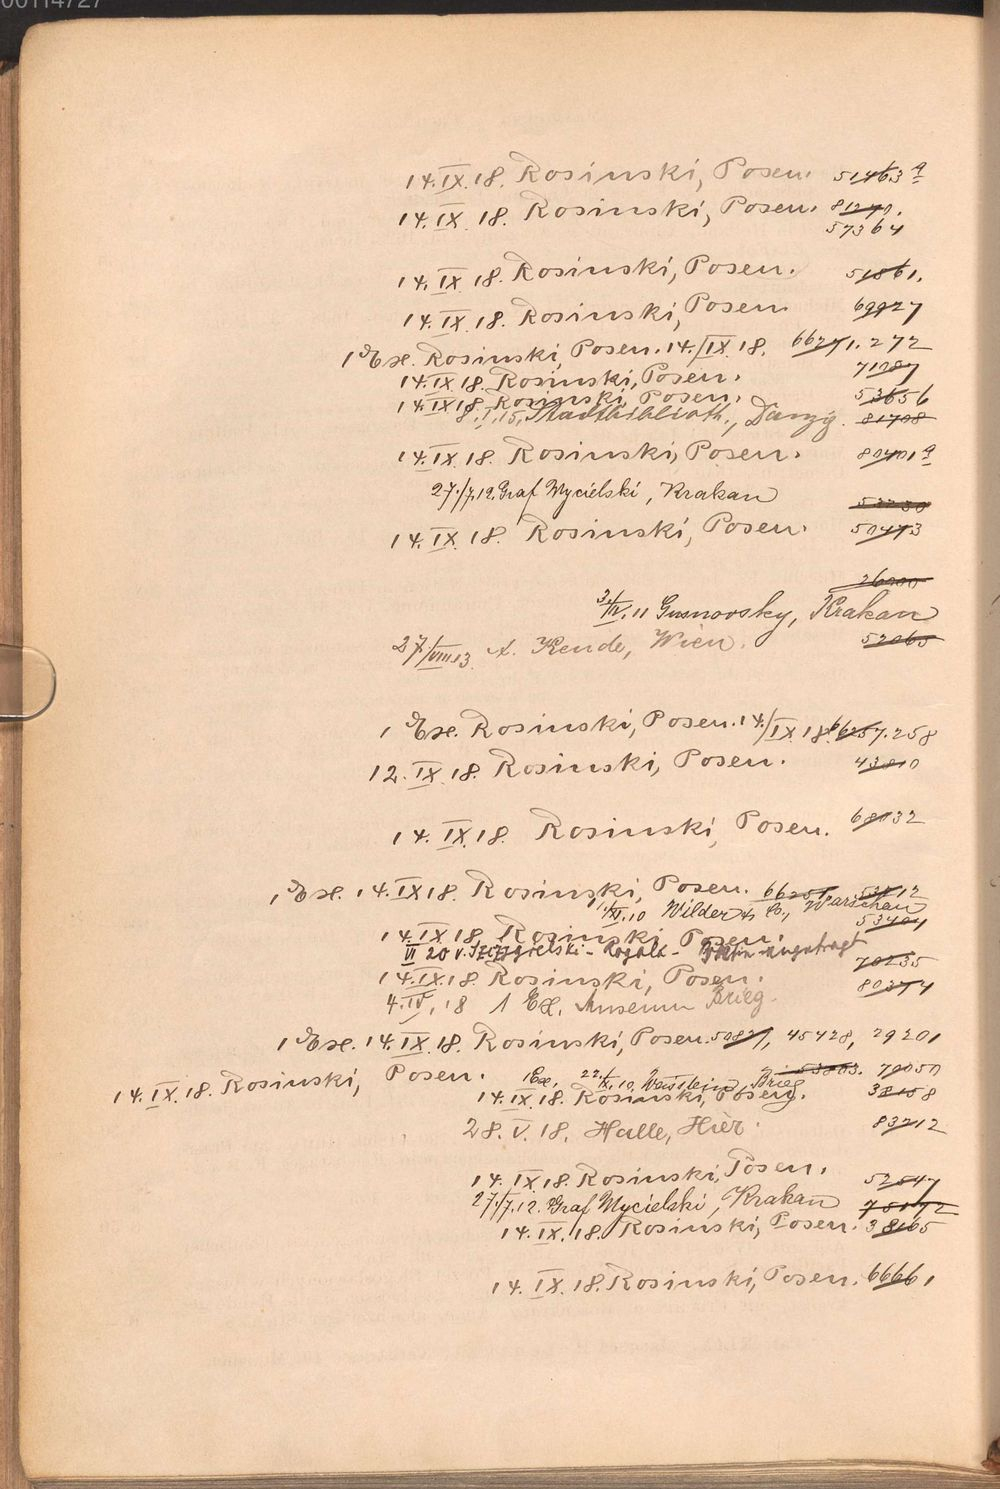 00114727
14.IX.18. Rosinski, Posen. 51463 a
14.IX.18. Rosinski, Posen. 81270.
57364
14.IX.18. Rosinski, Posen. 51861.
14.IX.18. Rosinski, Posen. 69927
1 Ex. Rosinski, Posen. 14./IX.18. 66271.272
14.IX.18. Rosinski, Posen. 71087
14.IX.18. Rosinski, Posen. 53656
8.I.15. Stadtbiblioth., Danzig. 81708
14.IX.18. Rosinski, Posen. 80401 a
27./7.12. Graf Mycielski, Krakau
14.IX.18. Rosinski, Posen. 50473
26200
3./IV.11 Gusnovsky, Krakau
27./VIII.13 A. Kende, Wien. 52065
1 Ex. Rosinski, Posen. 14./IX.18. 66257.258
12.IX.18. Rosinski, Posen. 43810
14.IX.18. Rosinski, Posen. 68032
1 Ex. 14.IX.18. Rosinski, Posen. 66251
XI.10 Wilder & Co., Warschau
53404
14.IX.18. Rosinski, Posen.
VI 20 v. - Rogala - 70235
14.IX.18. Rosinski, Posen. 80374
4.IV.18 1 Ex. Museum Brieg.
1 Ex. 14.IX.18. Rosinski, Posen. 50827, 45428, 29201
14.IX.18. Rosinski, Posen. 1 Ex. 22./X.10, Brieg 53803. 70050
14.IX.18. Rosinski, Posen. 38158
28.V.18. Halle, Hier. 83212
14.IX.18. Rosinski, Posen. 52547
27./7.12. Graf Mycielski, Krakau 75172
14.IX.18. Rosinski, Posen. 38165
14.IX.18. Rosinski, Posen. 66661